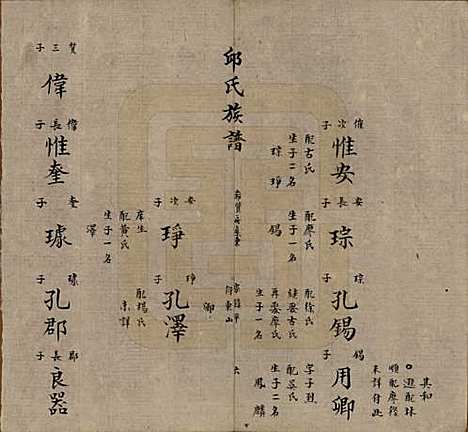 其和
順配廖徑
未詳付此
催次子
惟安
配古氏
生子二名
琮 琤
安長子
琮
配廖氏
生子一名
錫
琮子
孔錫
配徐氏
繼娶古氏
再娶廖氏
生子一名
錫子
用卿
字子烈
生子二名
鳳 麟
邱氏族譜
六
安次子
琤
庠生
配黃氏
生子一名
澤
琤子
孔澤
配楊氏
未詳
賛三子
偉
偉長子
惟奎
奎子
璩
璩子
孔郡
郡長子
良器